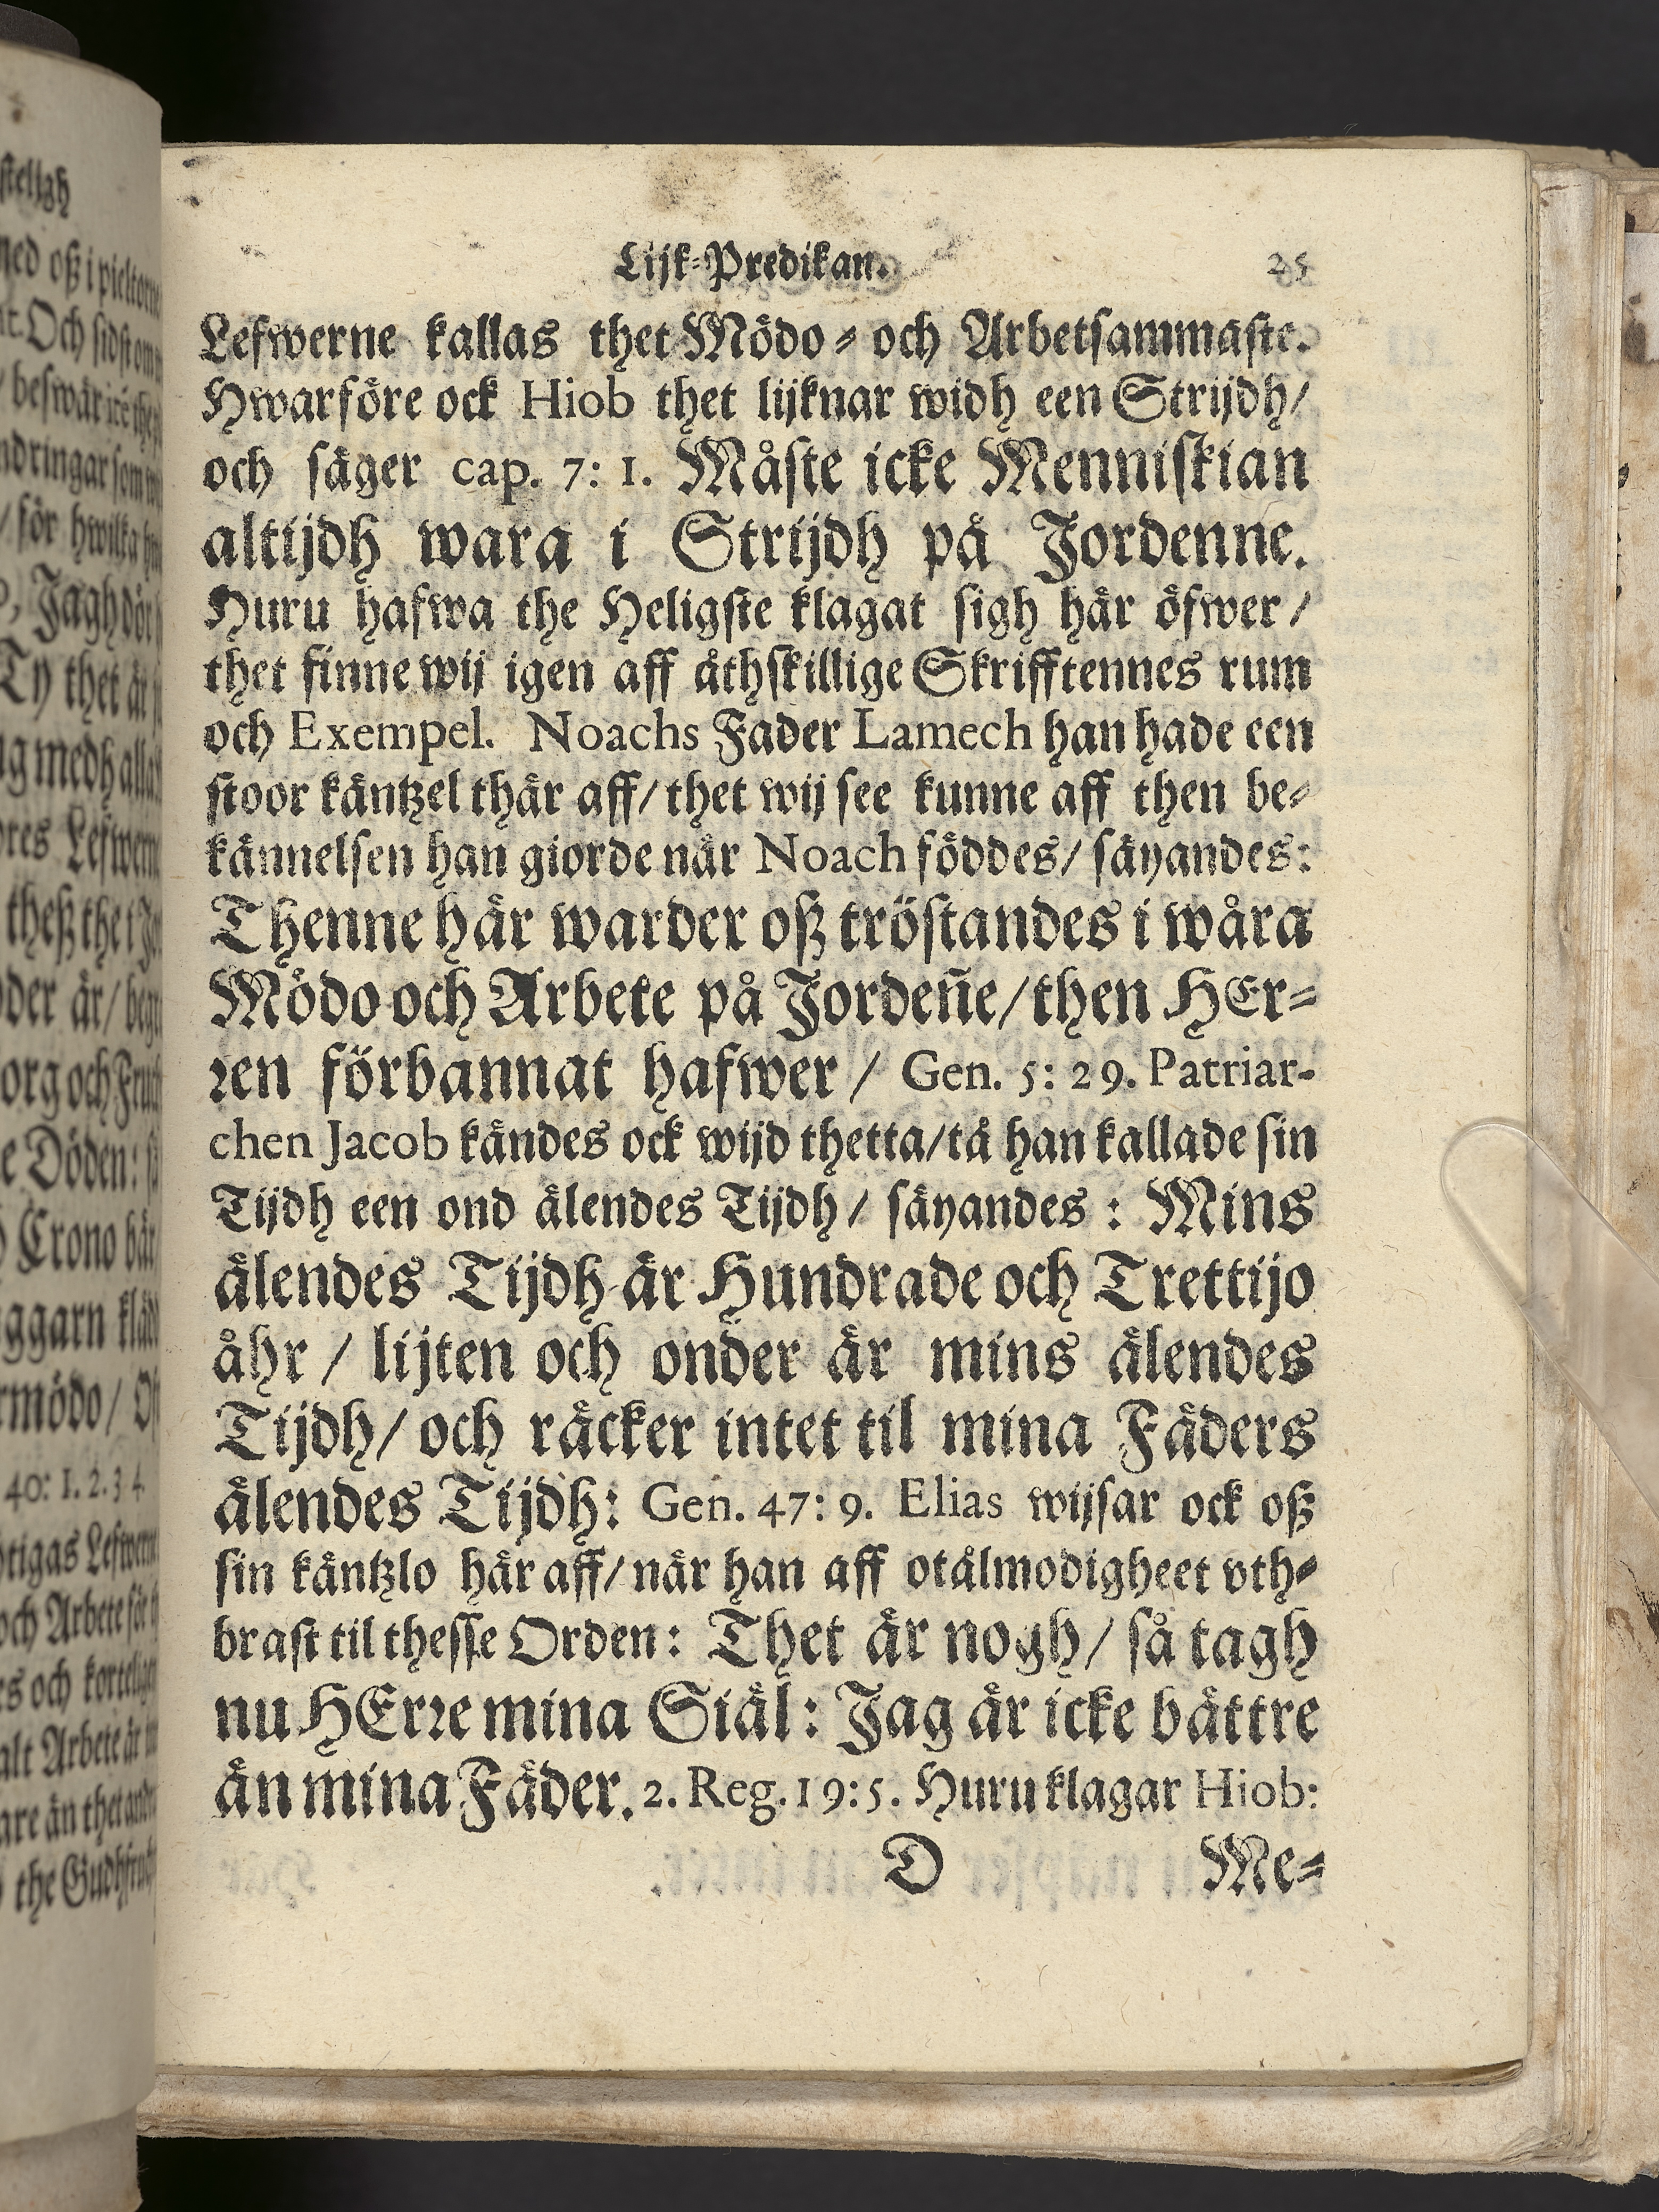 Lijk-Predikan. 25
Lefwerne kallas thet Mödo- och Arbetsammaste.
Hwarföre ock Hiob thet lijknar widh een Strijdh/
och säger cap. 7: 1. Måste icke Menniskian
altijdh wara i Strijdh på Jordenne.
Huru hafwa the Heligste klagat sigh här öfwer/
thet finne wij igen aff åthskillige Skrifftennes rum
och Exempel. Noachs Fader Lamech han hade een
stoor käntzel thär aff/ thet wij see kunne aff then be-
kännelsen han giorde när Noach föddes/ säyandes:
Thenne här warder oß tröstandes i wåra
Mödo och Arbete på Jordeñe/ then HEr-
ren förbannat hafwer/ Gen. 5: 29. Patriar-
chen Jacob kändes ock wijd thetta/ tå han kallade sin
Tijdh een ond älendes Tijdh/ säyandes: Mins
älendes Tijdh är Hundrade och Trettijo
åhr/ lijten och onder är mins älendes
Tijdh/ och räcker intet til mina Fäders
älendes Tijdh: Gen. 47: 9. Elias wijsar ock oß
sin käntzlo här aff/ när han aff otålmodigheet vth-
brast til thesse Orden: Thet är nogh/ så tagh
nu HErre mina Siäl: Jag är icke bättre
än mina Fäder. 2. Reg. 19: 5. Huru klagar Hiob:
D Me-